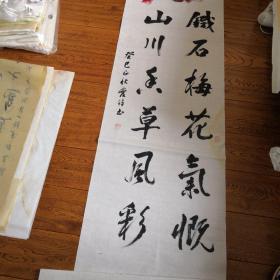 鐵石梅花氣概
山川香草風彩
癸巳秋